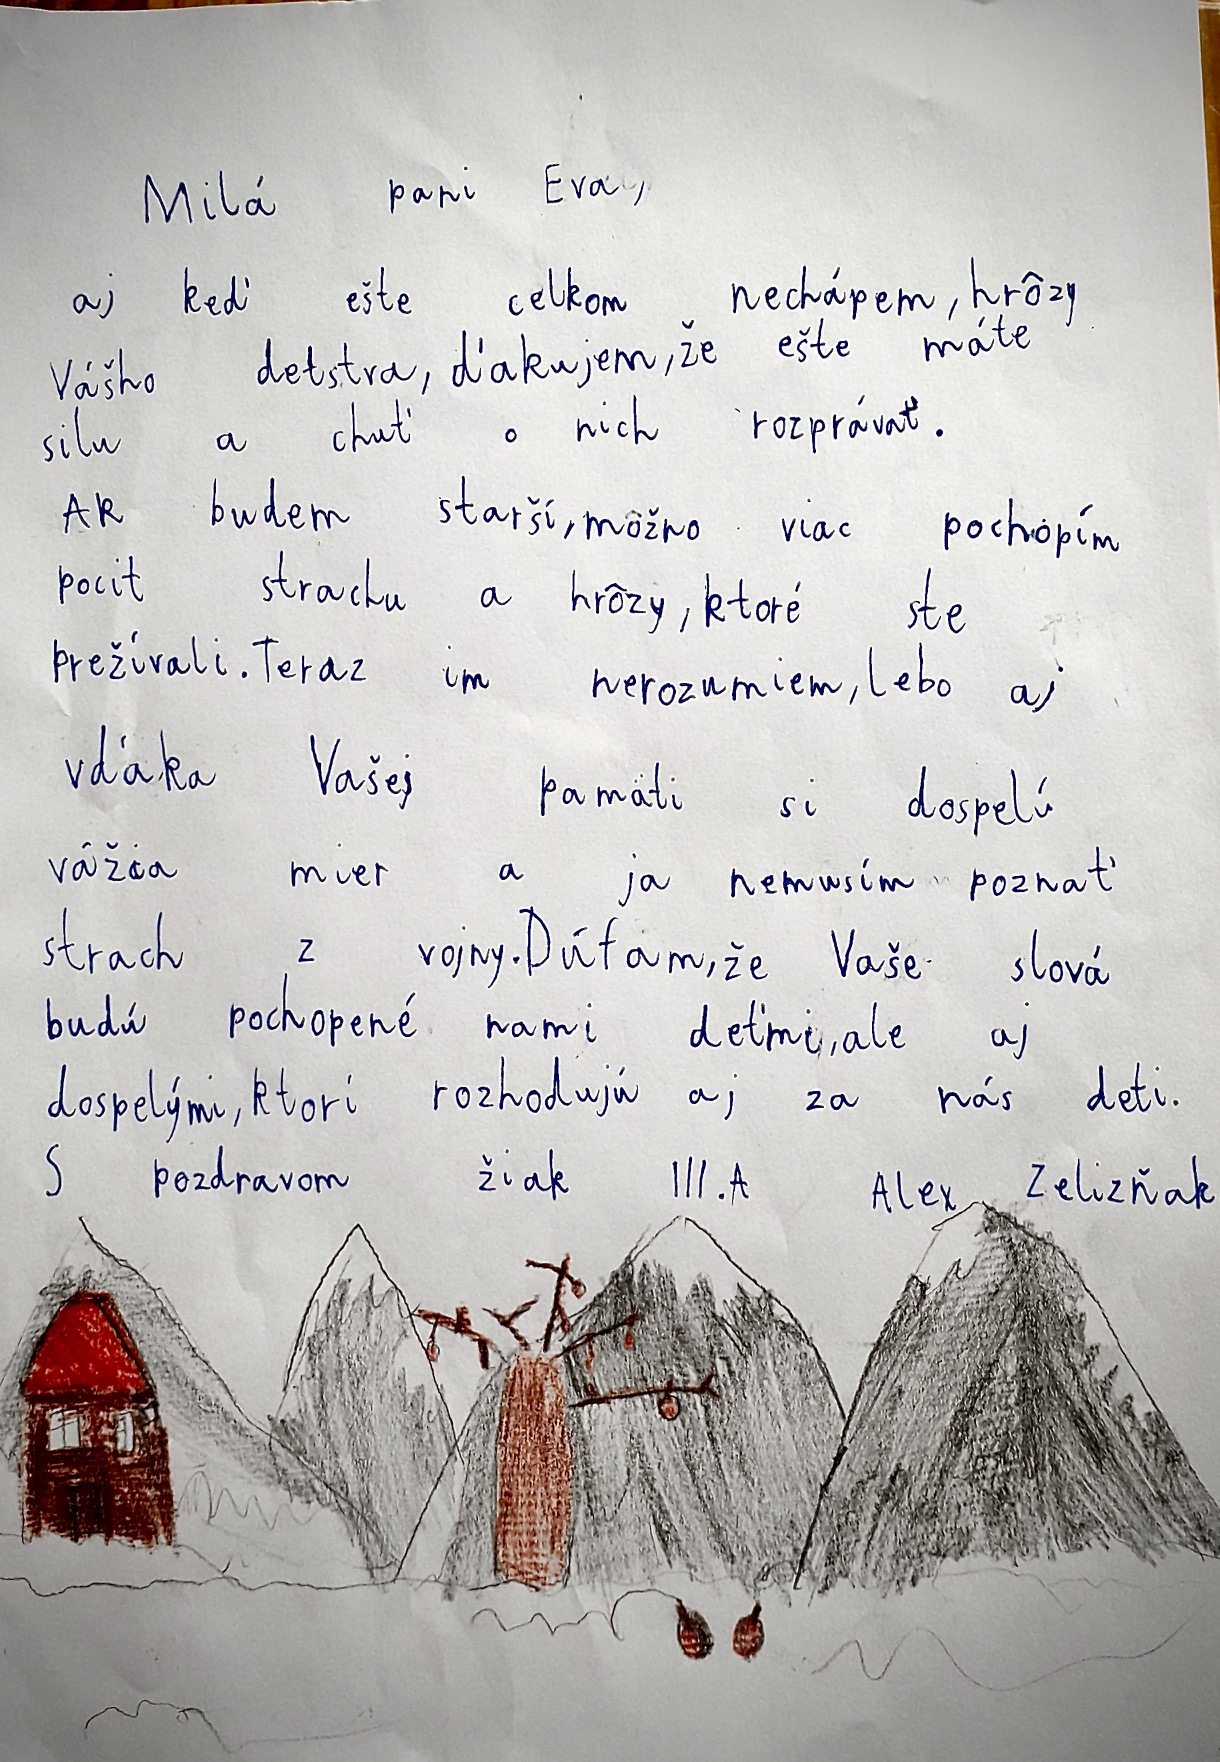 Milá pani Eva,
aj keď ešte celkom nechápem, hrôzy
Vášho detstva, ďakujem, že ešte máte
silu a chuť o nich rozprávať.
Ak budem starší, môžno viac pochopím
pocit strachu a hrôzy, ktoré ste
prežívali. Teraz im nerozumiem, lebo aj
vďaka Vašej pamäti si dospelú
vážia mier a ja nemusím poznať
strach z vojny. Dúfam, že Vaše slová
budú pochopené nami deťmi, ale aj
dospelými, ktorí rozhodujú aj za nás deti.
S pozdravom žiak III.A Alex Zelizňak